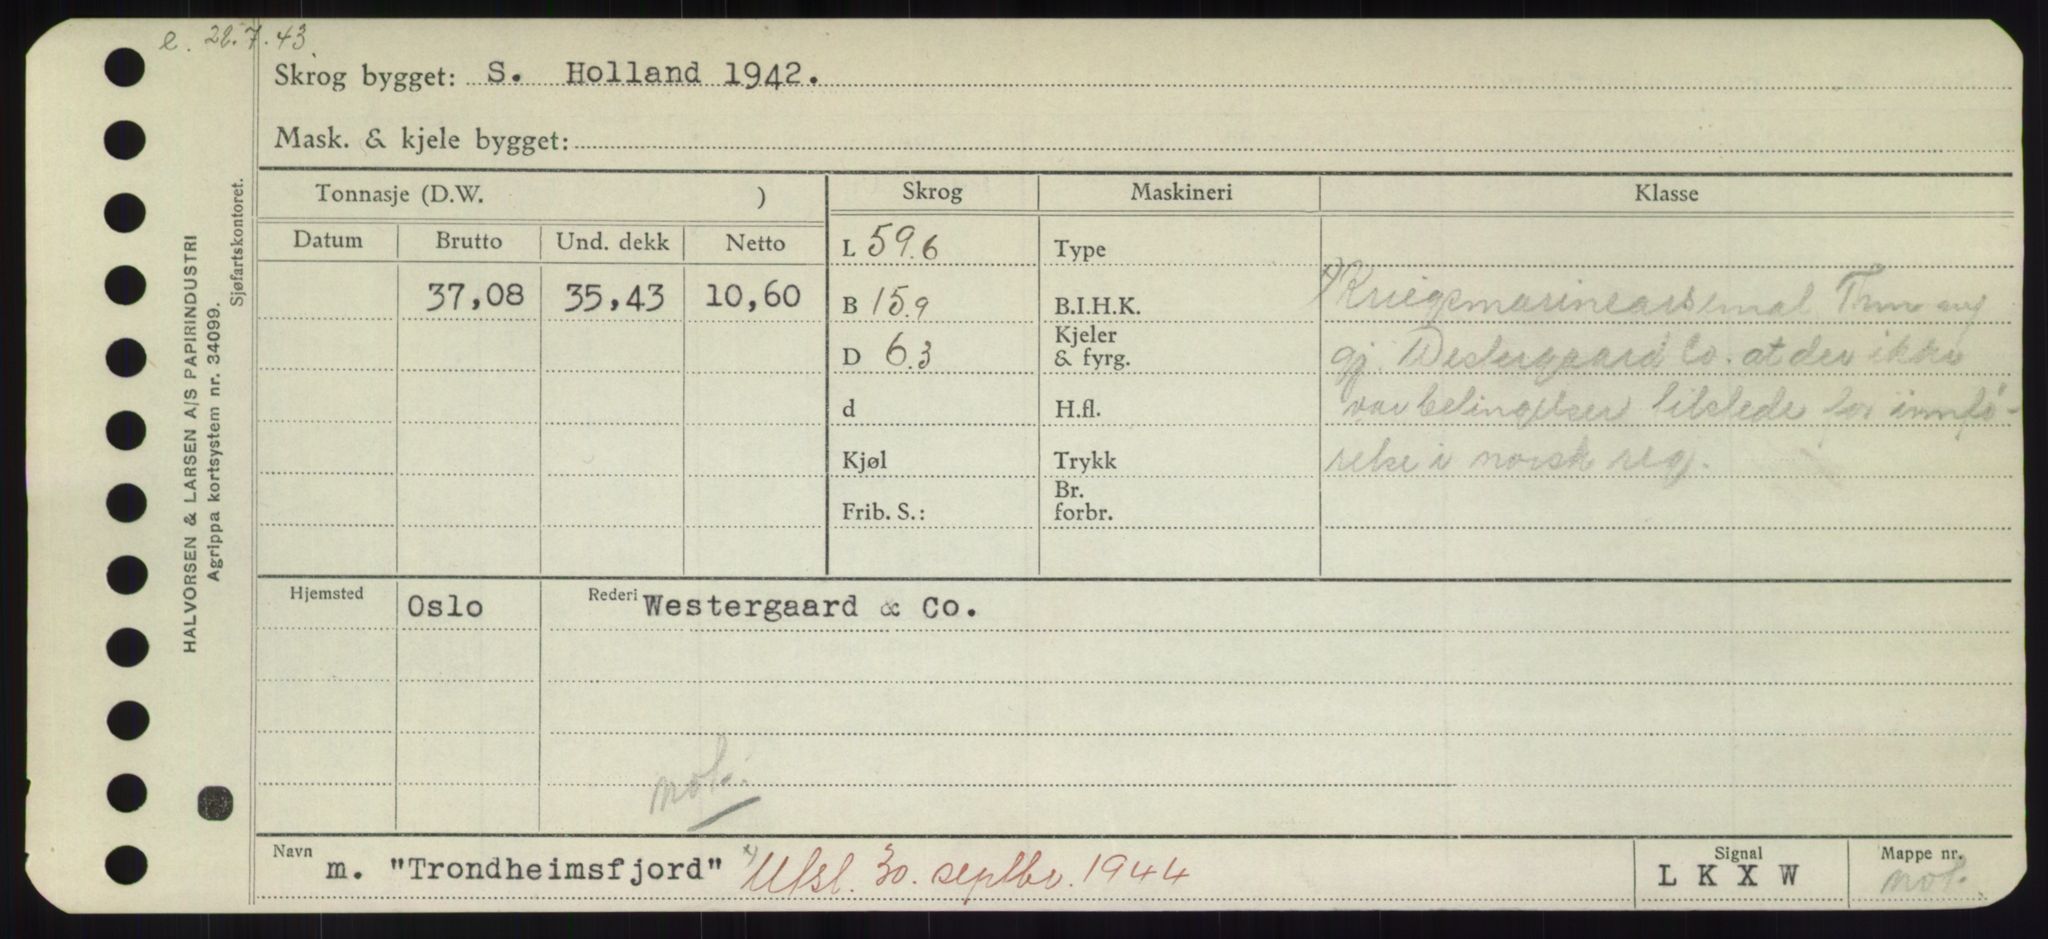 e. 28.7.43.
Skrog bygget: S. Holland 1942.
Mask. & kjele bygget:
HALVORSEN & LARSEN A/S PAPIRINDUSTRI
Agrippa kortsystem nr. 34099.
Sjøfartskontoret.
Tonnasje (D.W. ) Skrog Maskineri Klasse
Datum Brutto Und. dekk Netto L 59.6 Type
37,08 35,43 10,60 B 15.9 B.I.H.K. x) Kriegsmarinearsenal
D 6.3 Kjeler & fyrg. gj. Westergaard Co. at der ikke
d H.fl. var betingelser tilstede for innfø-
Kjøl Trykk relse i norsk reg.
Frib. S.: Br. forbr.
Hjemsted Oslo Rederi Westergaard & Co.
mot.
Navn m. "Trondheimsfjord" x) Utsl. 30. septbr. 1944 Signal L K X W Mappe nr. mot.